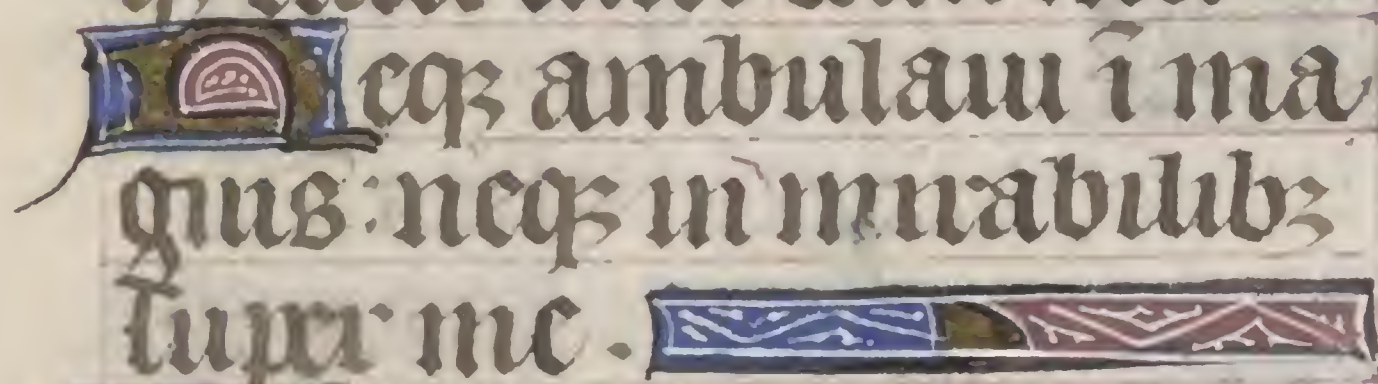 Neqꝫ ambulaui ī ma
gnis: neqꝫ in mirabilibꝫ
super me.